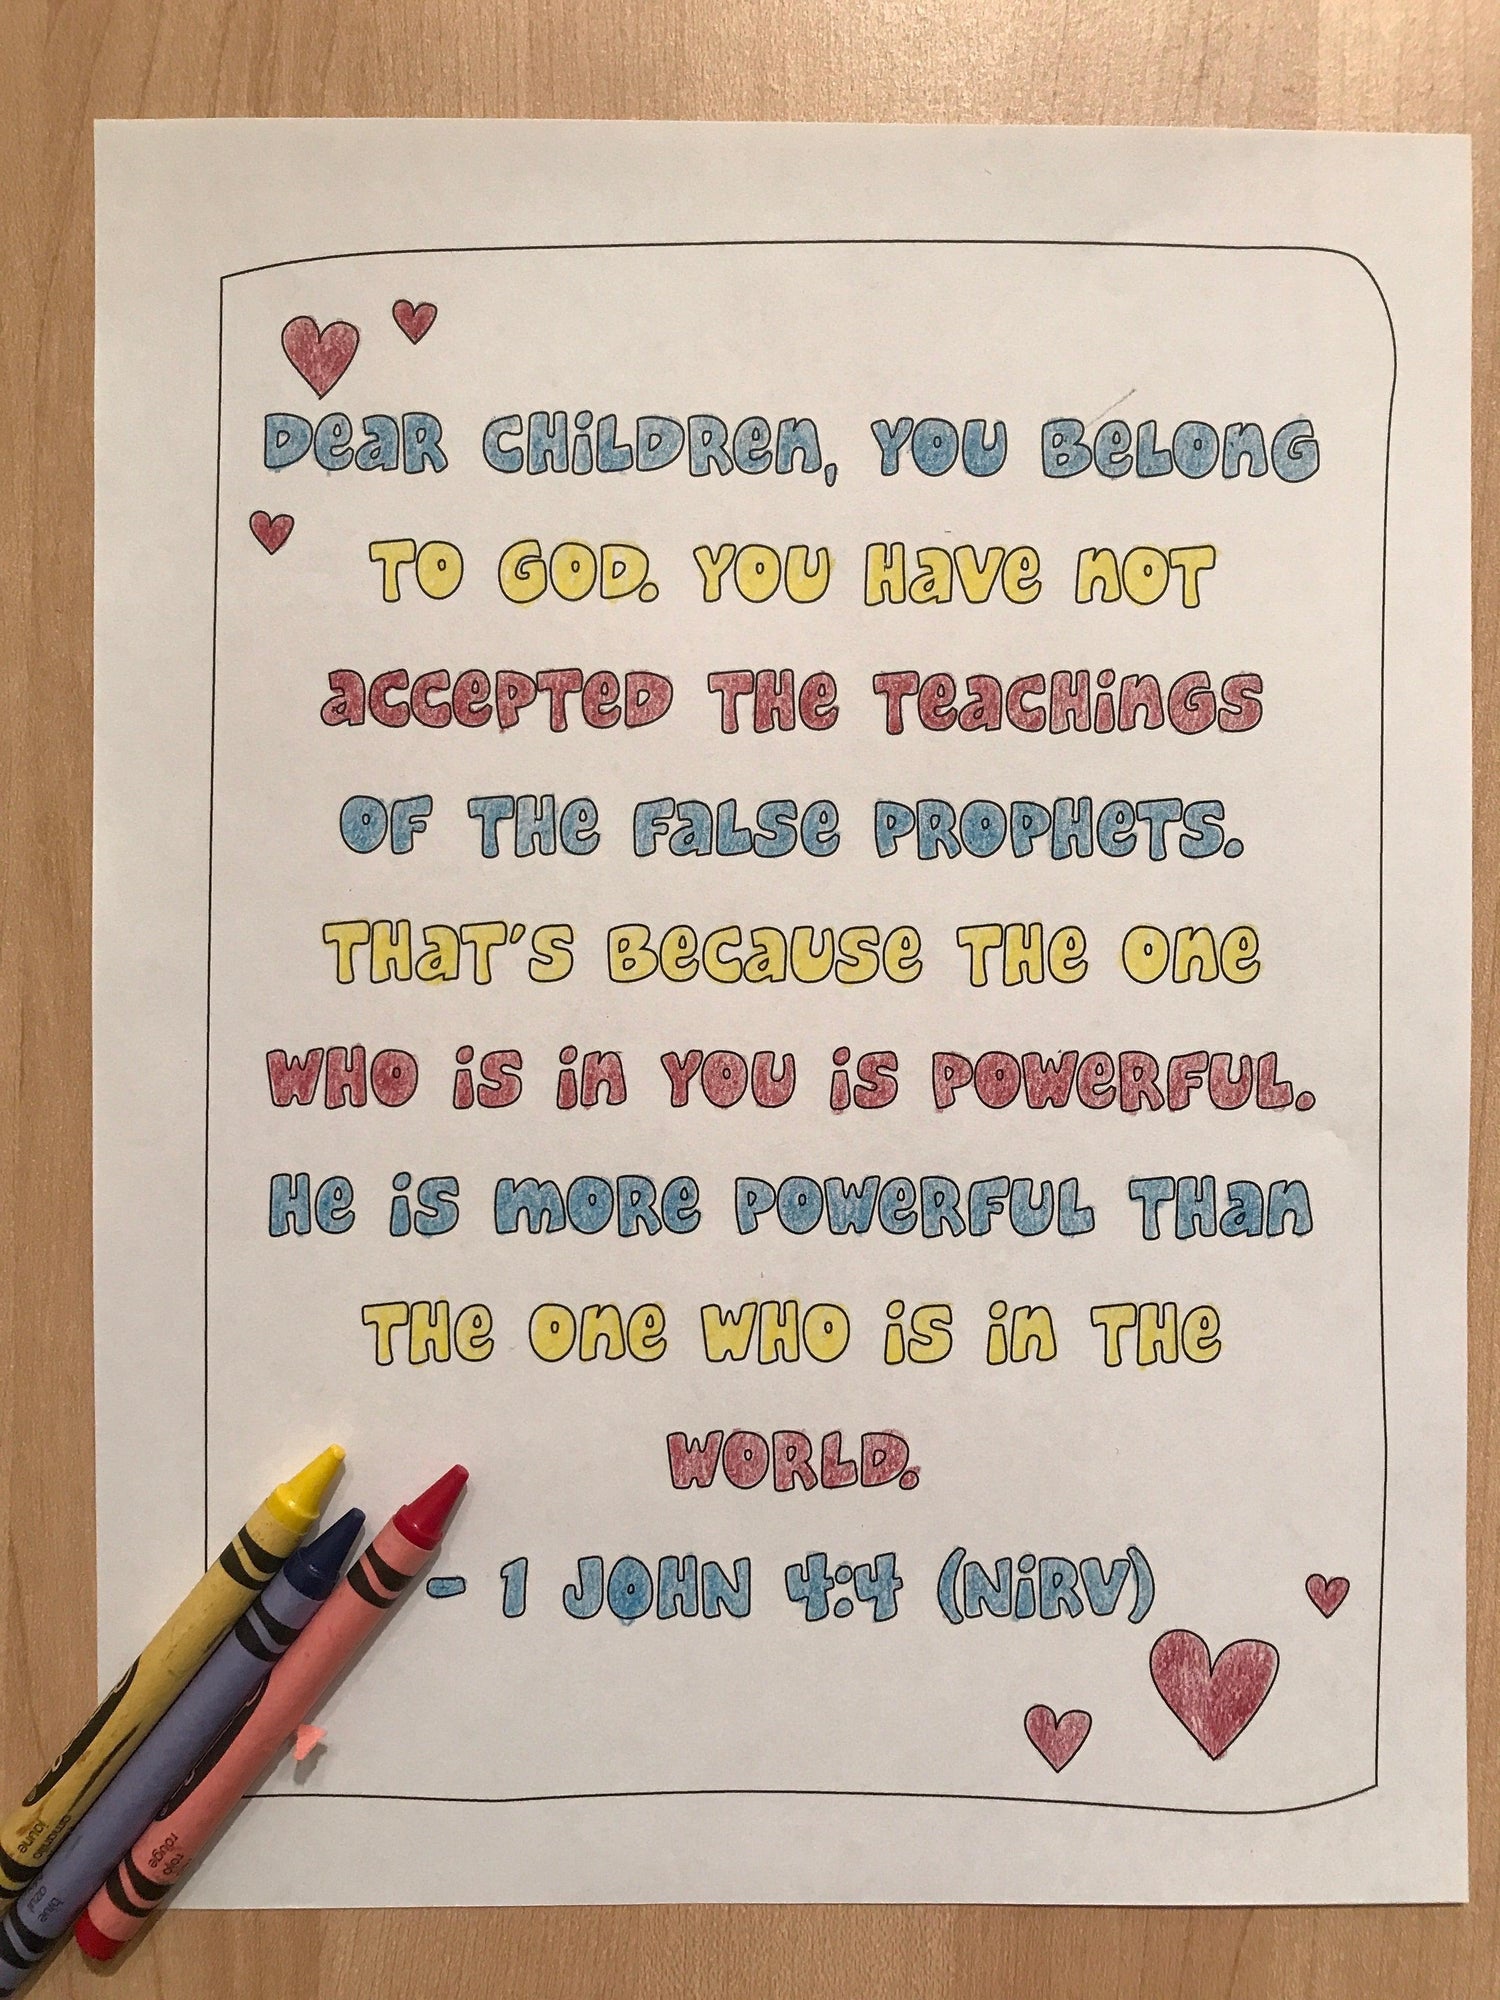 Dear Children, you belong
to God. You have not
accepted the teachings
of the false prophets.
That's because the one
who is in you is powerful.
He is more powerful than
the one who is in the
world.
- 1 John 4:4 (NIRV)
jaune
amarillo
blue
azul
rouge
rojo